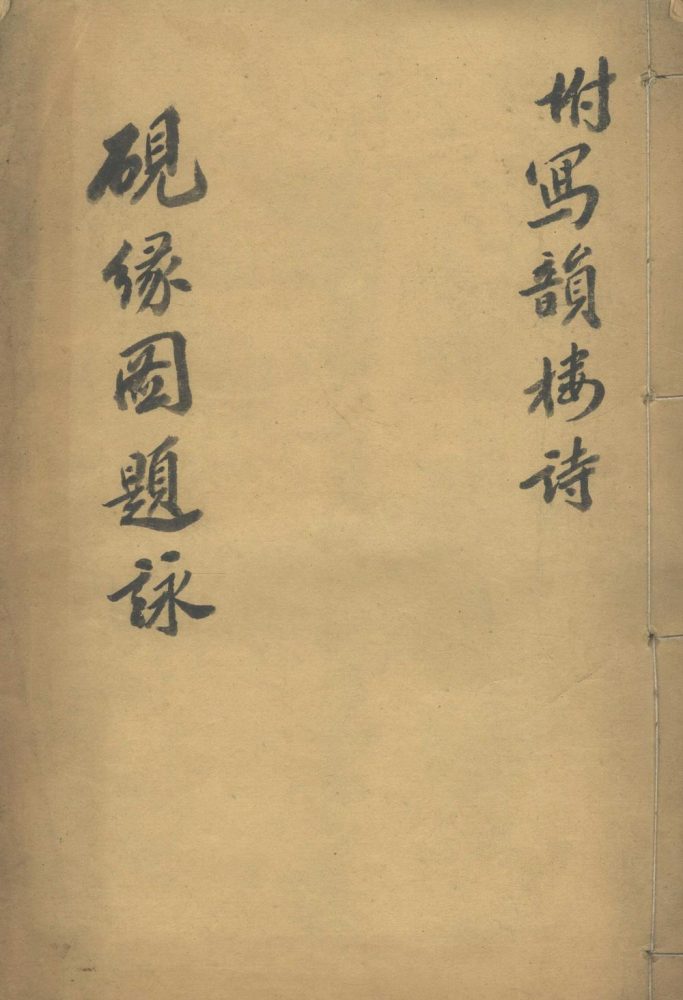 坿寫韻樓詩
硯緣圖題詠